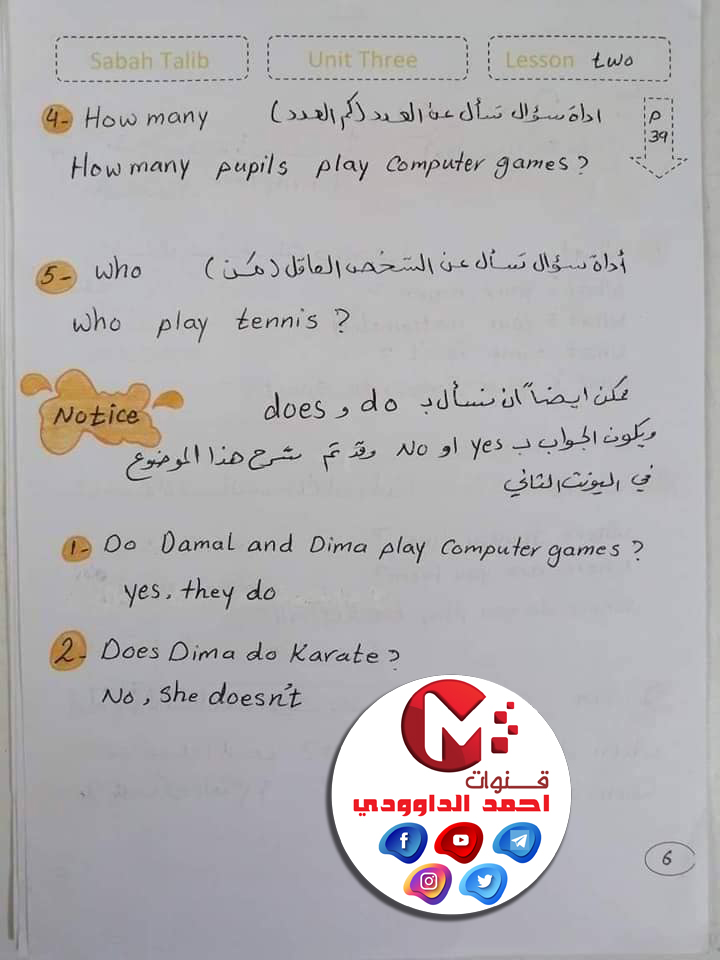 Sabah Talib
Unit Three
Lesson two
4- How many اداة سؤال تسأل عن العدد (كم العدد)
P 39
How many pupils play computer games?
5- who أداة سؤال تسأل عن الشخص العاقل (مَن)
who play tennis?
Notice
يمكن ايضاً ان نسأل بـ do و does
ويكون الجواب ب yes او No وقد تم شرح هذا الموضوع
في اليونت الثاني
1- Do Damal and Dima play computer games?
yes, they do
2- Does Dima do Karate?
No, she doesn't
قنوات
احمد الداوودي
6